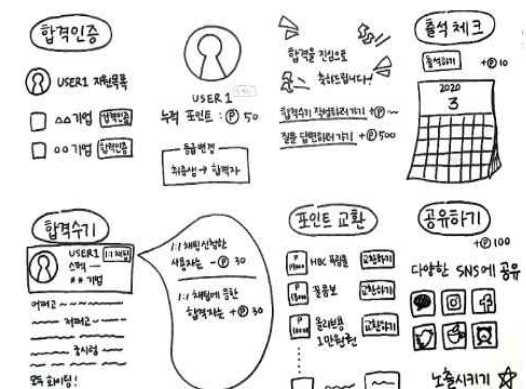 합격인증
USER1 지원목록
△△기업 합격인증
○○기업 합격인증
USER1
누적 포인트 : Ⓟ 50
등급변경
취준생 → 합격자
합격을 진심으로
축하드립니다!
합격수기 작성하러가기 +Ⓟ ~
질문 답변하러 가기 +Ⓟ500
출석체크
출석하기 +Ⓟ10
2020
3
합격수기
USER1 1:1 채팅
스펙 —
** 기업
어쩌고 ~
저쩌고 ~
궁시렁 ~
모두 화이팅!
1:1 채팅신청한
사용자는 -Ⓟ 30
1:1 채팅에 응한
합격자는 +Ⓟ 30
포인트 교환
P
교환하기
P
꿀콤보 교환하기
P
올리브영 교환하기
1만원권
공유하기
+Ⓟ100
다양한 SNS에 공유
노출시키기 ☆